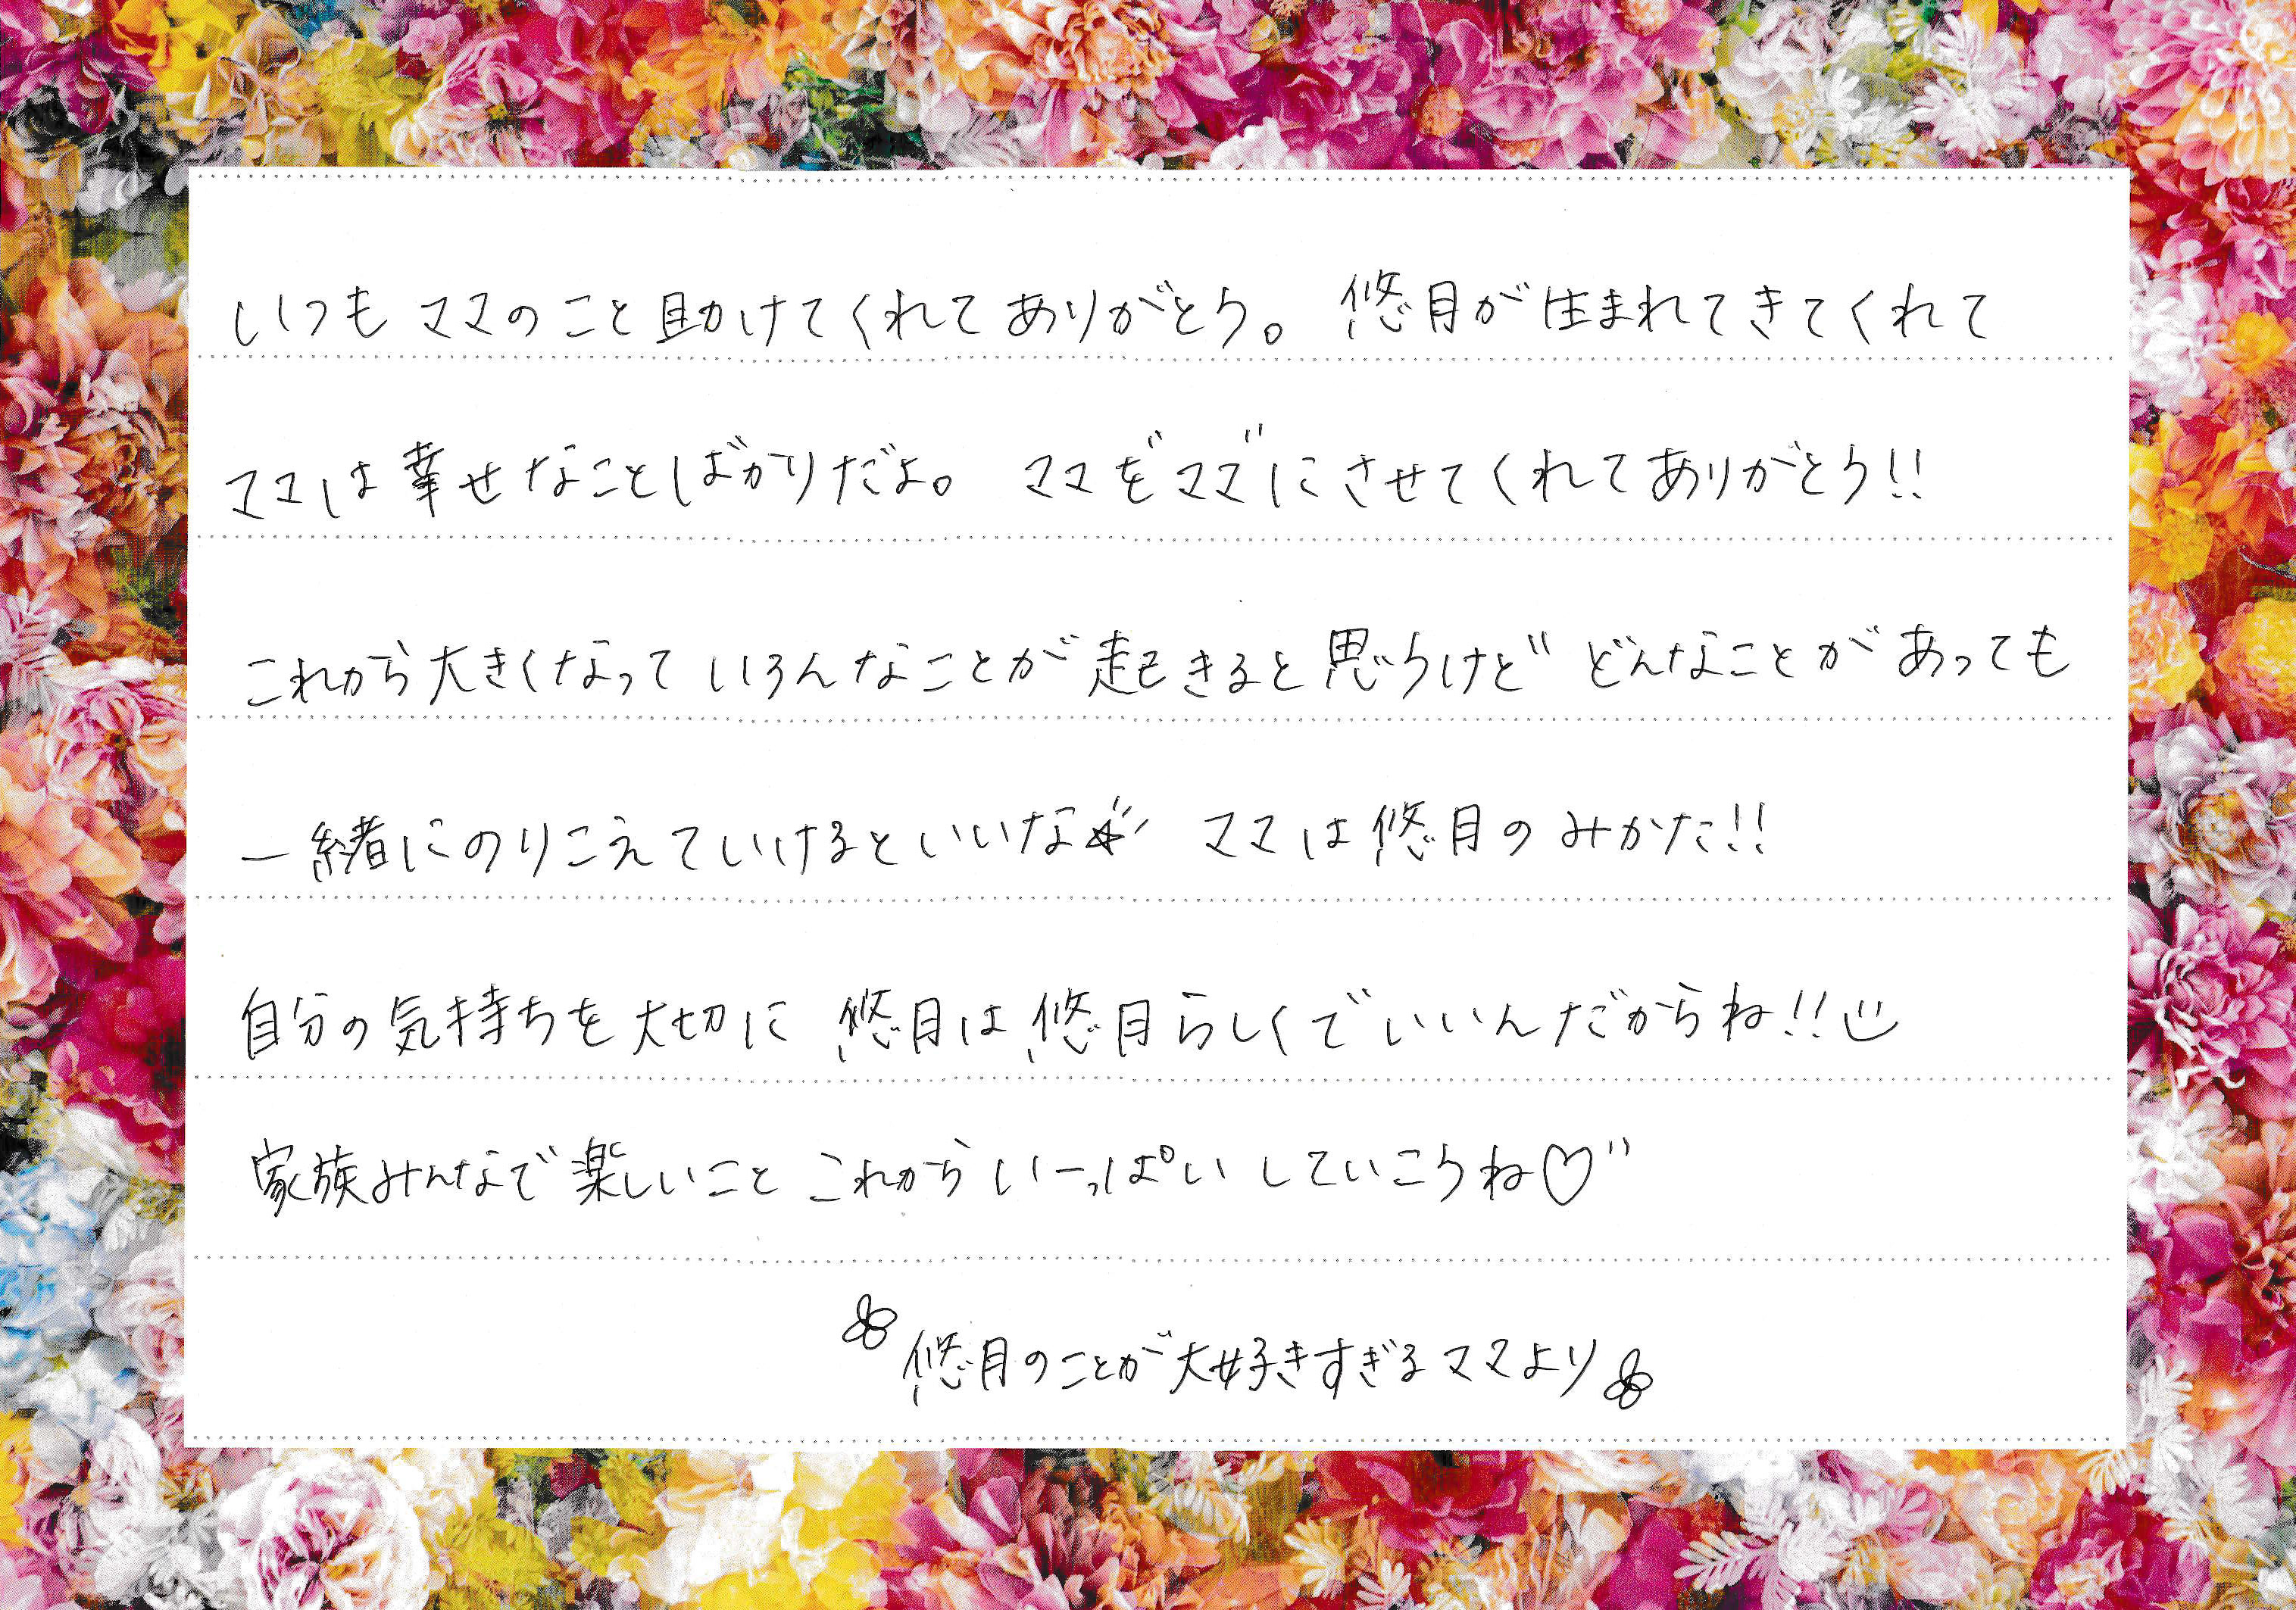 いつもママのこと助けてくれてありがとう。 悠月が生まれてきてくれて
ママは幸せなことばかりだよ。 ママを"ママ"にさせてくれてありがとう!!
これから大きくなっていろんなことが起きると思うけど どんなことがあっても
一緒にのりこえていけるといいな☆ ママは悠月のみかた!!
自分の気持ちを大切に 悠月は悠月らしくでいいんだからね!!
家族みんなで楽しいこと これからいーっぱいしていこうね♡
悠月のことが大好きすぎるママより